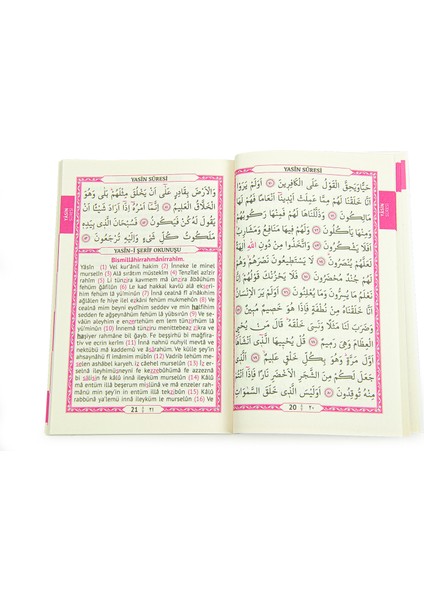 YASİN SÛRESİ
حَيًّا وَيَحِقَّ الْقَوْلُ عَلَى الْكَافِرِينَ ﴿٧٠﴾ اَوَلَمْ يَرَوْا
اَنَّا خَلَقْنَا لَهُمْ مِمَّا عَمِلَتْ اَيْدِينَا اَنْعَاماً فَهُمْ لَهَا
مَالِكُونَ ﴿٧١﴾ وَذَلَّلْنَاهَا لَهُمْ فَمِنْهَا رَكُوبُهُمْ
وَمِنْهَا يَأْكُلُونَ ﴿٧٢﴾ وَلَهُمْ فِيهَا مَنَافِعُ وَمَشَارِبُ
اَفَلَا يَشْكُرُونَ ﴿٧٣﴾ وَاتَّخَذُوا مِنْ دُونِ اللّٰهِ اٰلِهَةً
لَعَلَّهُمْ يُنْصَرُونَ ﴿٧٤﴾ لَا يَسْتَطِيعُونَ نَصْرَهُمْ وَهُمْ
لَهُمْ جُنْدٌ مُحْضَرُونَ ﴿٧٥﴾ فَلَا يَحْزُنْكَ قَوْلُهُمْ اِنَّا
نَعْلَمُ مَا يُسِرُّونَ وَمَا يُعْلِنُونَ ﴿٧٦﴾ اَوَلَمْ يَرَ الْاِنْسَانُ
اَنَّا خَلَقْنَاهُ مِنْ نُطْفَةٍ فَاِذَا هُوَ خَصِيمٌ مُبِينٌ ﴿٧٧﴾
وَضَرَبَ لَنَا مَثَلاً وَنَسِيَ خَلْقَهُ قَالَ مَنْ يُحْيِي
الْعِظَامَ وَهِيَ رَمِيمٌ ﴿٧٨﴾ قُلْ يُحْيِيهَا الَّذِي اَنْشَاَهَا
اَوَّلَ مَرَّةٍ وَهُوَ بِكُلِّ خَلْقٍ عَلِيمٌ ﴿٧٩﴾ اَلَّذِي
جَعَلَ لَكُمْ مِنَ الشَّجَرِ الْاَخْضَرِ نَاراً فَاِذَا اَنْتُمْ
مِنْهُ تُوقِدُونَ ﴿٨٠﴾ اَوَلَيْسَ الَّذِي خَلَقَ السَّمٰوَاتِ
20 ٢٠
YASİN SÛRESİ
وَالْاَرْضَ بِقَادِرٍ عَلٰى اَنْ يَخْلُقَ مِثْلَهُمْ بَلٰى وَهُوَ
الْخَلَّاقُ الْعَلِيمُ ﴿٨١﴾ اِنَّمَا اَمْرُهُ اِذَا اَرَادَ شَيْئاً اَنْ
يَقُولَ لَهُ كُنْ فَيَكُونُ ﴿٨٢﴾ فَسُبْحَانَ الَّذِي بِيَدِهِ
مَلَكُوتُ كُلِّ شَيْءٍ وَاِلَيْهِ تُرْجَعُونَ ﴿٨٣﴾
YASİN-İ ŞERİF OKUNUŞU
Bismillâhirrahmânirrahîm.
Yâsîn (1) Vel kur'ânil hakim (2) İnneke le minel
murselîn (3) Alâ sırâtın müstekîm (4) Tenzîlel azîzir
rahîm (5) Li tünzira kavmen mâ ünzira âbâühüm
fehüm ğâfilûn (6) Le kad hakkal kavlü alâ ekseri-
him fehüm lâ yü'minûn (7) İnnâ cealnâ fî a'nâkıhim
ağlâlen fe hiye ilel ezkâni fehüm mukmehûn (8) Ve
cealnâ min beyni eydîhim sedden ve min halfihim
sedden fe ağşeynâhüm fehüm lâ yübsirûn (9) Ve se-
vâün aleyhim e enzertehüm em lem tünzirhüm lâ
yü'minûn (10) İnnemâ tünziru menittebeaz zikra ve
haşiyer rahmâne bil ğayb. Fe beşşirhü bi mağfira-
tiv ve ecrin kerîm (11) İnnâ nahnü nuhyil mevtâ ve
nektübü mâ kaddemû ve âsârahüm ve külle şey'in
ahsaynâhü fî imâmim mübîn (12) Vadrib lehüm me-
selen ashâbel karyeh. İz câehel murselûn (13) İz er-
selnâ ileyhimüsneyni fe kezzebûhümâ fe azzeznâ
bi sâlisin fe kâlû innâ ileyküm murselûn (14) Kâlû
mâ entüm illâ beşerum mislünâ ve mâ enzeler rahmânü
min şey'in in entüm illâ tekzibûn (15) Kâlû
rabbünâ ya'lemü innâ ileyküm le murselûn (16) Ve
21 ٢١